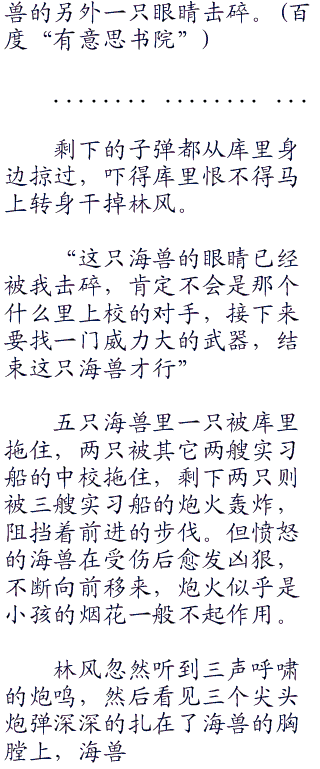 兽的另外一只眼睛击碎。(百
度“有意思书院”)
........ ........ ...
剩下的子弹都从库里身
边掠过，吓得库里恨不得马
上转身干掉林风。
“这只海兽的眼睛已经
被我击碎，肯定不会是那个
什么里上校的对手，接下来
要找一门威力大的武器，结
束这只海兽才行”
五只海兽里一只被库里
拖住，两只被其它两艘实习
船的中校拖住，剩下两只则
被三艘实习船的炮火轰炸，
阻挡着前进的步伐。但愤怒
的海兽在受伤后愈发凶狠，
不断向前移来，炮火似乎是
小孩的烟花一般不起作用。
林风忽然听到三声呼啸
的炮鸣，然后看见三个尖头
炮弹深深的扎在了海兽的胸
膛上，海兽